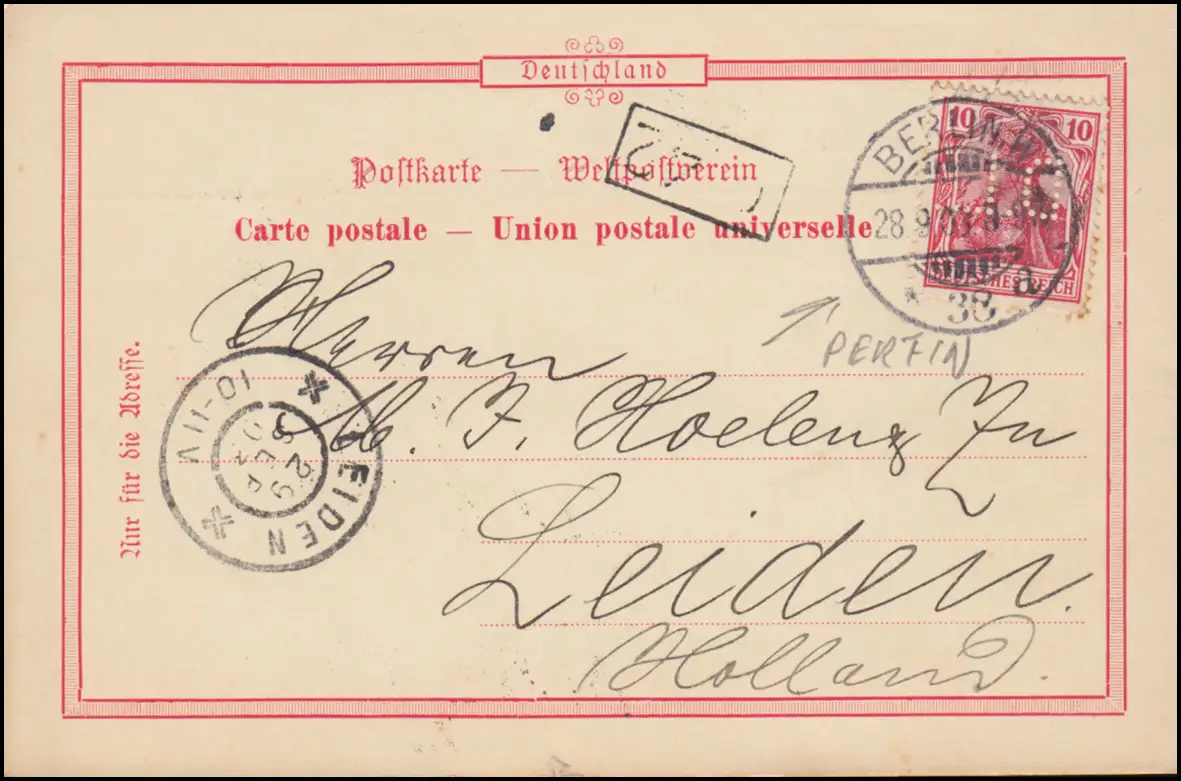 Deutschland
10 10
DEUTSCHES REICH
BERLIN.W.
28.9.03.8-9
a
* 38
Postkarte — Weltpostverein
Carte postale — Union postale universelle
PERFIN
Herren
J. Hoelenz
Leiden.
Holland.
Nur für die Adresse.
* LEIDEN *
10-11V
29
SEP
03